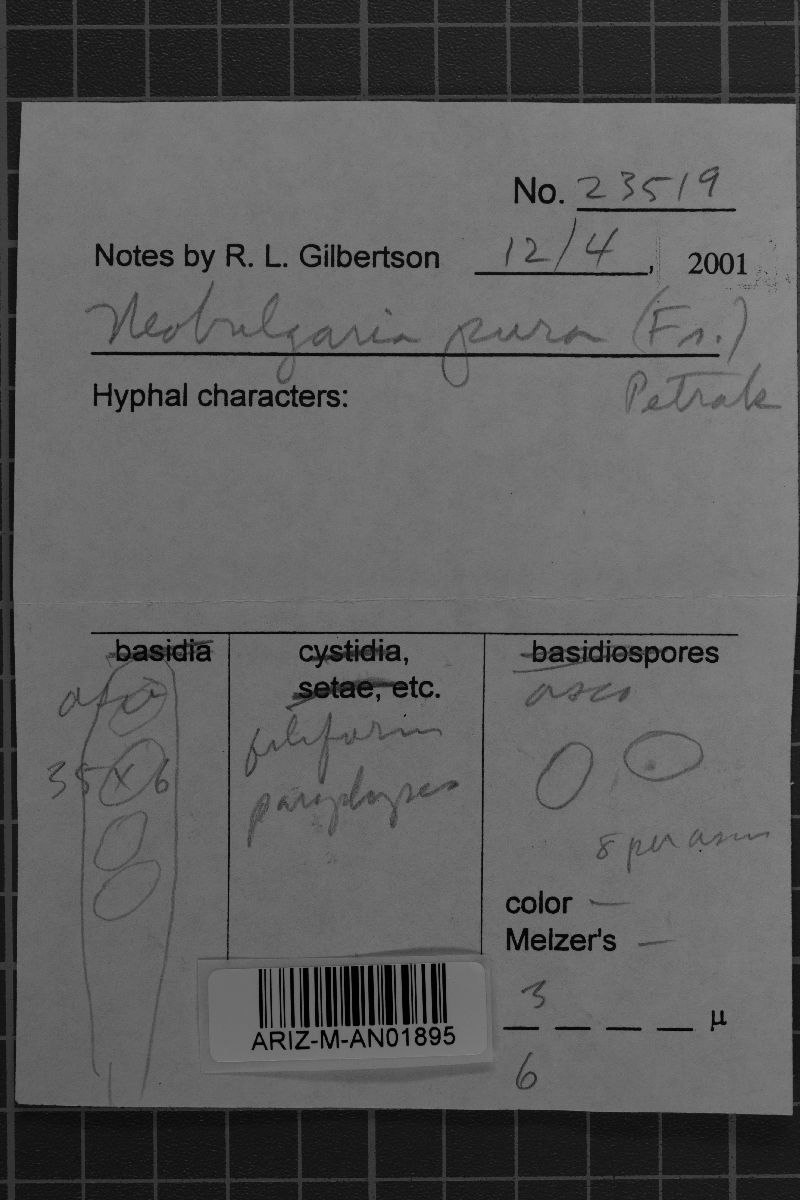 No. 23519
Notes by R. L. Gilbertson 12/4, 2001
Neobulgaria pura (Fr.)
Petrak
Hyphal characters:
basidia
asci
35 x 6
cystidia,
setae, etc.
filiform
paraphyses
basidiospores
asco
8 per ascus
color —
Melzer's —
3
μ
6
ARIZ-M-AN01895